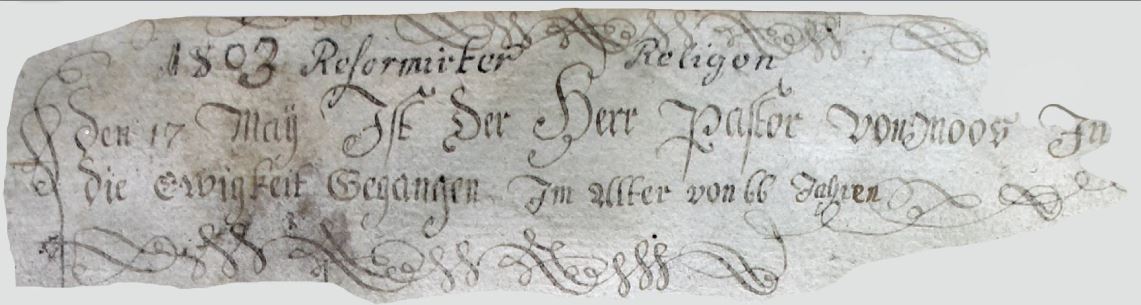 1803 Reformirter Religon
Den 17 Maÿ Ist Der Herr Pastor VonMoos In
Die Ewigkeit Gegangen Im Alter von 66 Jahren